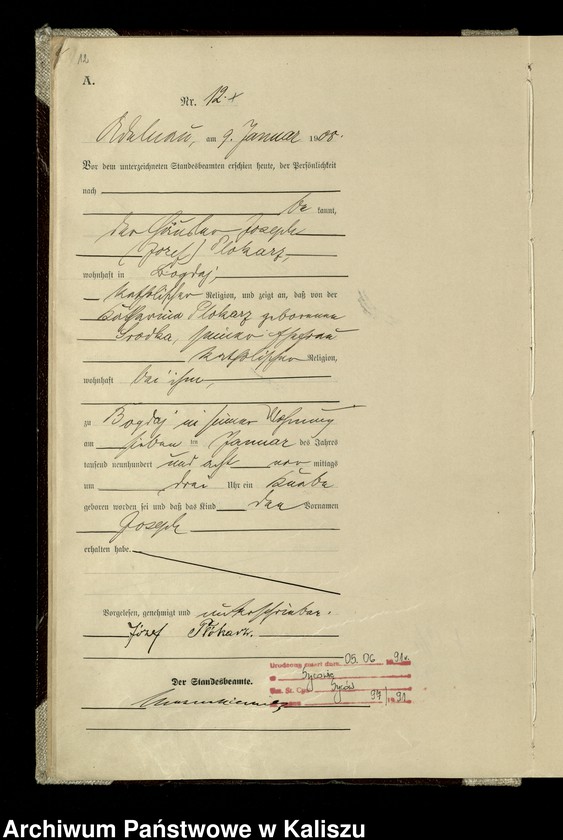 12
A.
Nr. 12.
Adelnau, am 9. Januar 1908.
Vor dem unterzeichneten Standesbeamten erschien heute, der Persönlichkeit
nach
be kannt,
der Häusler Joseph
(Józef) Płokarz,
wohnhaft in Bogdaj,
katholischer Religion, und zeigt an, daß von der
Katharina Płokarz geborenen
Srodka, seiner Ehefrau
katholischer Religion,
wohnhaft bei ihm,
zu Bogdaj in seiner Wohnung
am sieben ten Januar des Jahres
tausend neunhundert und acht vor mittags
um drei Uhr ein Knabe
geboren worden sei und daß das Kind den Vornamen
Joseph
erhalten habe.
Vorgelesen, genehmigt und unterschrieben.
Józef Płokarz.
Der Standesbeamte.
05.06 91r.
w Sycowie
Syców
97/ 91
Archiwum Państwowe w Kaliszu